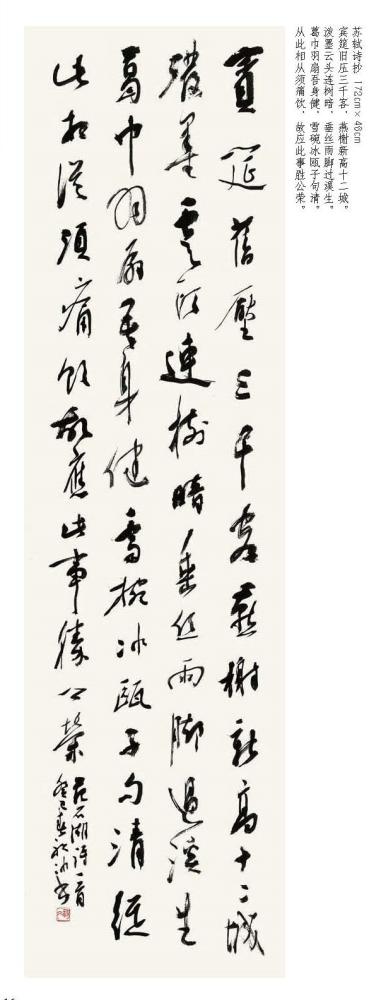 苏轼诗抄 172cm×46cm
宾筵旧压三千客，燕榭新高十二城。
泼墨云头连树暗，垂丝雨脚过溪生。
葛巾羽扇吾身健，雪碗冰瓯子句清。
从此相从须痛饮，故应此事胜公荣。
賓筵舊壓三千客燕榭新高十二城
潑墨雲頭連樹暗垂絲雨腳過溪生
葛巾羽扇吾身健雪椀冰甌子句清從
此相從須痛飲故應此事勝公榮
范石湖詩一首